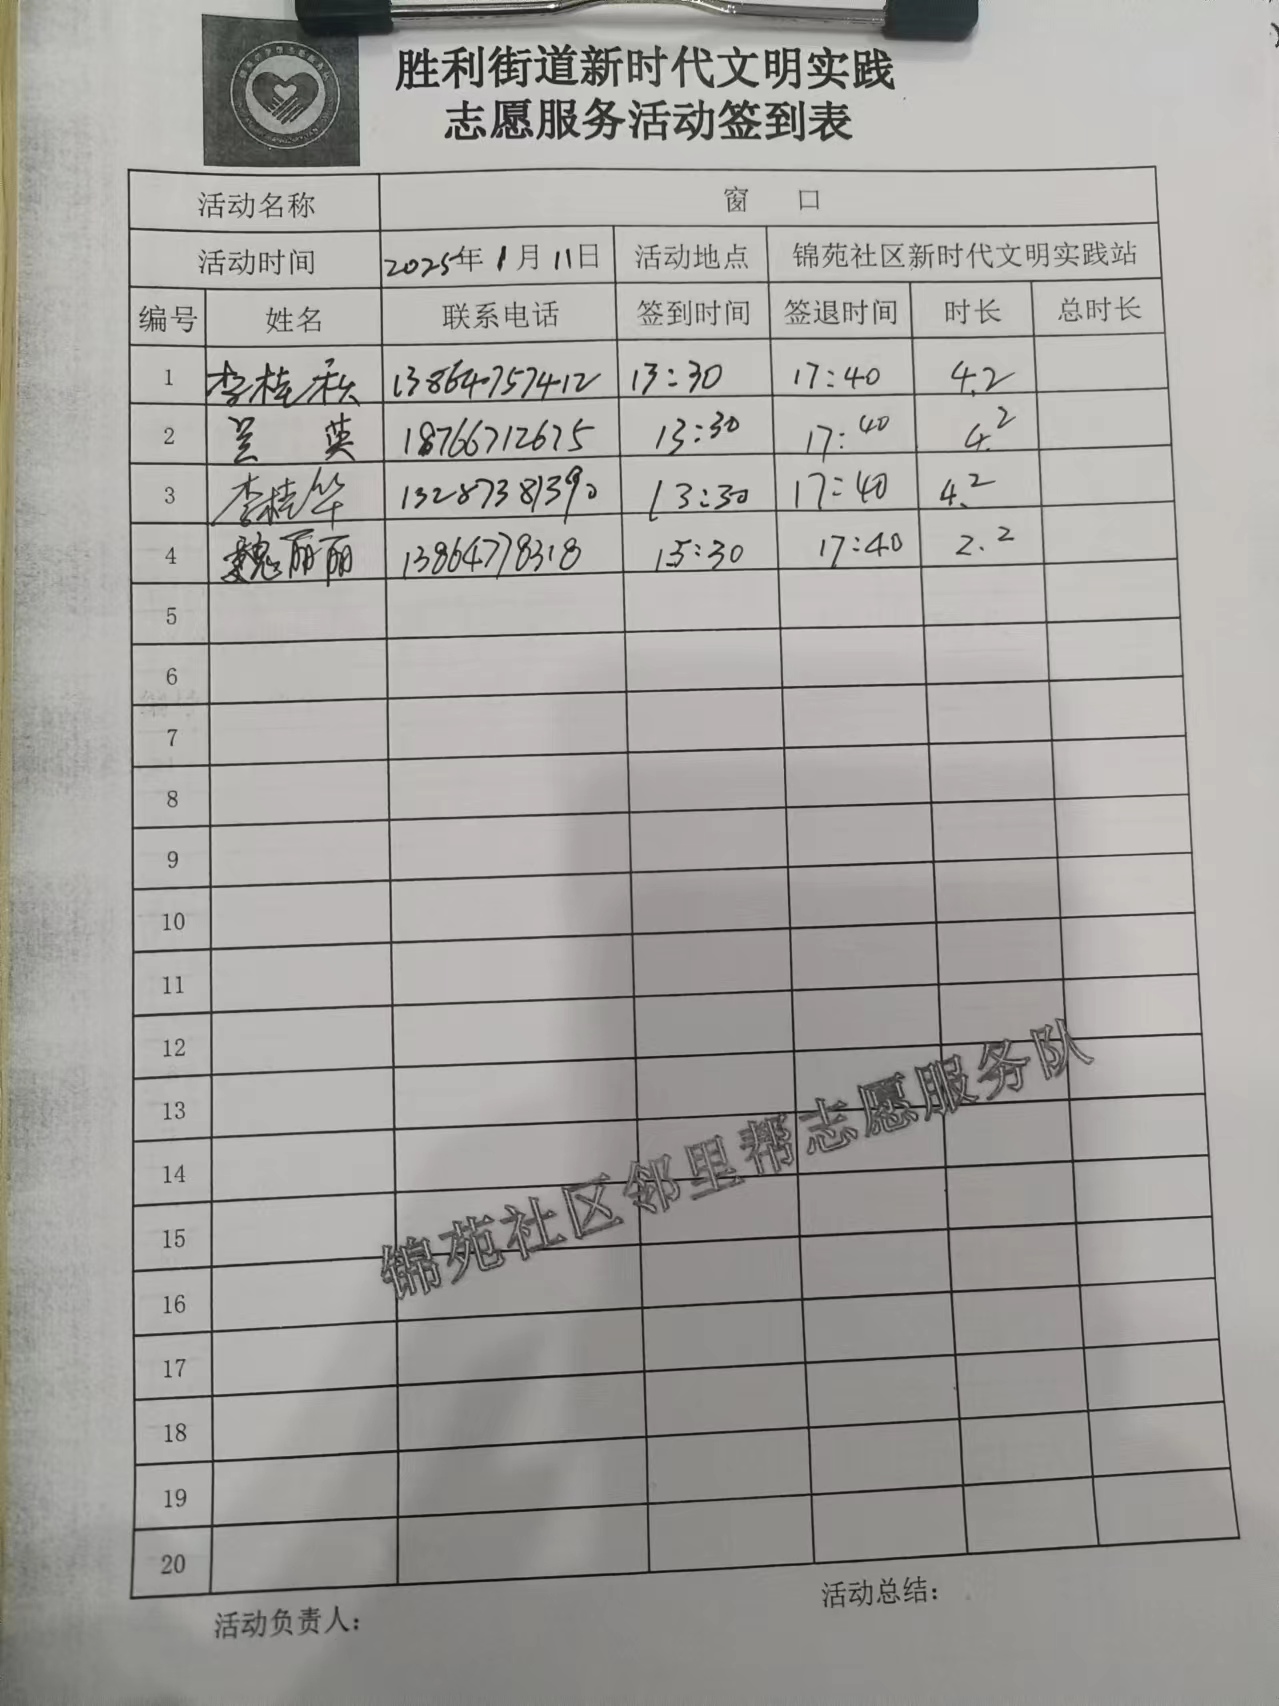 胜利街道新时代文明实践
志愿服务活动签到表
活动名称 窗 口
活动时间 2025年1月11日 活动地点 锦苑社区新时代文明实践站
编号 姓名 联系电话 签到时间 签退时间 时长 总时长
1 李桂秋 13864757412 13:30 17:40 4.2
2 兰英 18766712675 13:30 17:40 4.2
3 李桂华 13287381390 13:30 17:40 4.2
4 魏丽丽 13864778318 15:30 17:40 2.2
5
6
7
8
9
10
11
12
13
14
15
16
17
18
19
20
锦苑社区邻里帮志愿服务队
活动负责人: 活动总结: